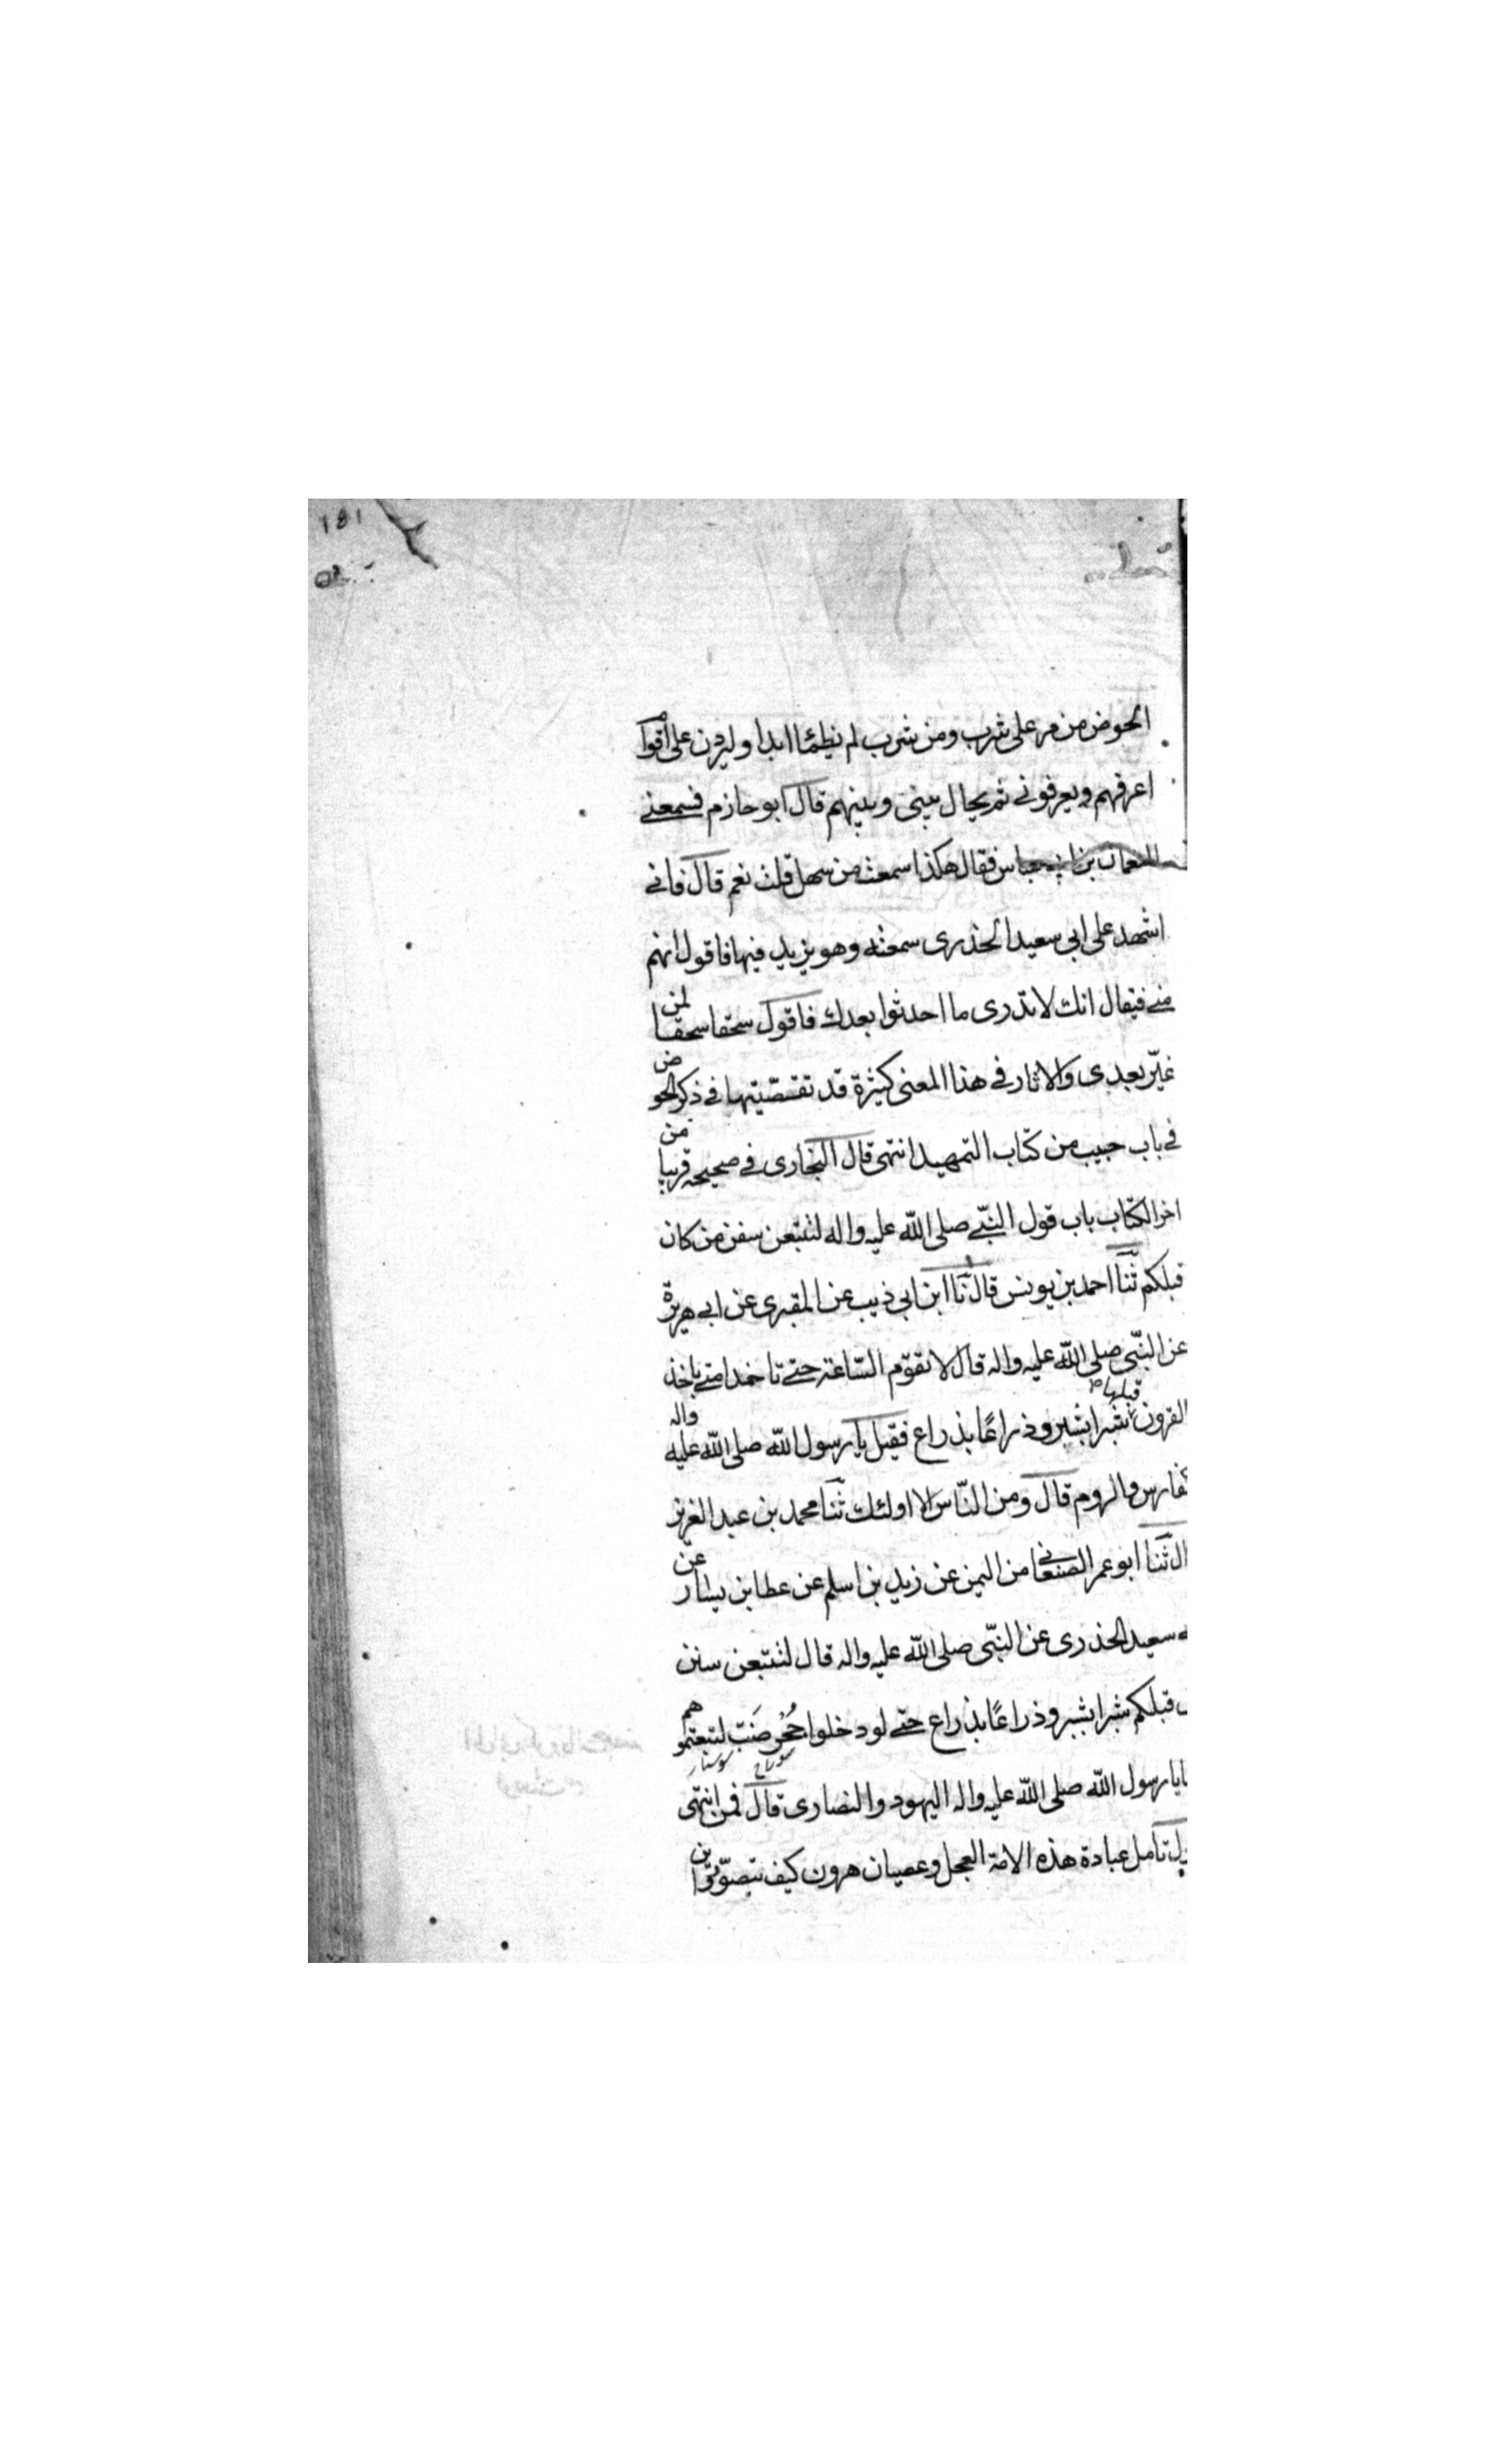 ١٥١
الحوض من مر على شرب ومن شرب لم يظمأ ابدا وليردن على اقوام
اعرفهم ويعرفوني ثم يحال بيني وبينهم قال ابو حازم فسمعني
النعمان بن ابي عياش فقال هكذا سمعت من سهل قلت نعم قال فاني
اشهد على ابي سعيد الخدرى سمعته وهو يزيد فيها فاقول انهم
مني فيقال انك لا تدرى ما احدثوا بعدك فاقول سحقا سحقا لمن
غيّر بعدى والاثار في هذا المعنى كثيرة قد تقصّيتها في ذكر الحوض
في باب حبيب من كتاب التمهيد انتهى قال البخارى في صحيحه قريبا من
اخر الكتاب باب قول النبّي صلى اللّه عليه واله لتتبعن سنن من كان
قبلكم ثنا احمد بن يونس قال نا ابن ابى ذيب عن المقبرى عن ابي هريرة
عن النبّي صلى اللّه عليه واله قال لا تقوم السّاعة حتى تاخذ امتي باخذ
القرون قبلها شبرا بشبر وذراعًا بذراع فقيل يا رسول اللّه صلى اللّه عليه واله
كفارس والروم قال ومن النّاس الا اولئك ثنا محمد بن عبد العزيز
ال ثنا ابو عمر الصنعاني من اليمن عن زيد بن اسلم عن عطا بن يسار عن
سعيد الخدرى عن النبّي صلى اللّه عليه واله قال لتتبعن سنن
قبلكم شبرا بشبر وذراعًا بذراع حتى لو دخلوا جُحْر ضَبّ لتبعتموهم
سوراخ سوسمار
يا رسول اللّه صلى اللّه عليه واله اليهود والنصارى قال فمن انتهى
تامل عبادة هذه الامة العجل وعصيان هرون كيف